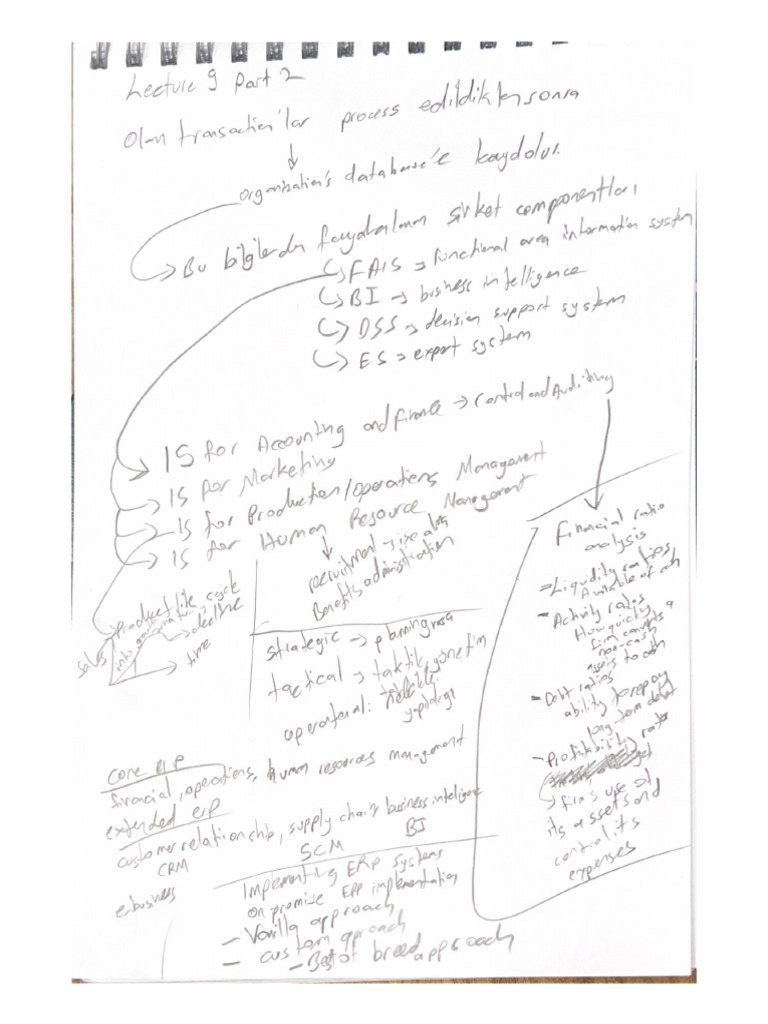 Lecture 9 part 2
Olan transaction'lar process edildikten sonra
↓
organization's database'e kaydolur.
→ Bu bilgilerden faydalanan şirket componentları
→ FAIS → functional area information system
→ BI → business intelligence
→ DSS → decision support system
→ ES → expert system
→ IS for Accounting and finance → control and Auditing
→ IS for Marketing
→ IS for Production/operations Management
→ IS for Human Resource Management
recruitment → işe alım
Benefits administration
Product life cycle
sales
into
decline
→ time
strategic → planning
tactical → taktik yönetim
operational:
core erp
financial, operations, human resources management
extended erp
customer relationship, supply chain, business intelligence
CRM
SCM
BI
e-business
Implementing ERP systems
On promise ERP implementation
- Vanilla approach
- custom aproach
- Best of breed approach
Financial ratio
analysis
- Liquidity ratios
Available of cash
- Activity rates
How quickly
firm converts
non-cash
assets to cash
- Debt ratios
ability to repay
long-term debt
- Profitability rates
→ firm's use of
its assets and
control its
expenses